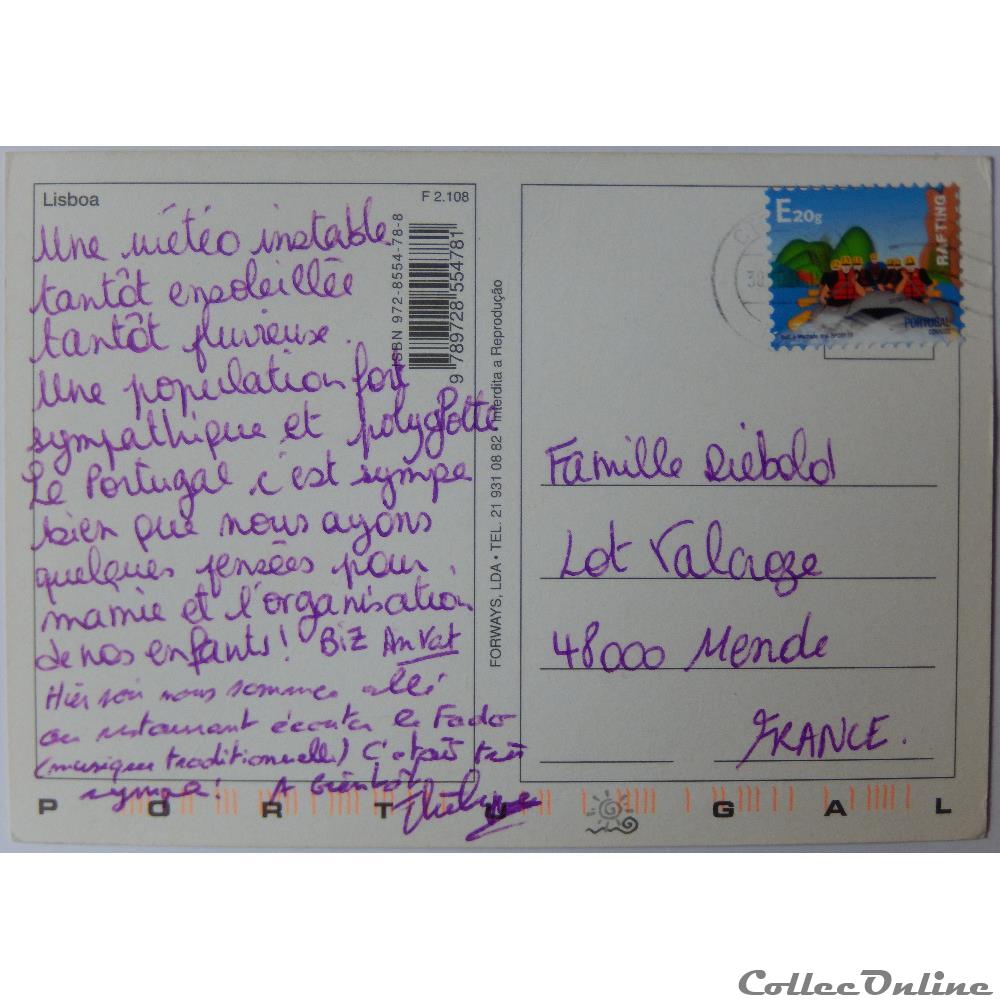 Lisboa
F 2.108
Une météo instable
tantôt ensoleillée
tantôt pluvieuse.
Une population fort
sympathique et polyglotte
Le Portugal c'est sympa
bien que nous ayons
quelques pensées pour
mamie et l'organisation
de nos enfants! BiZ
Hier soir nous sommes allé
au restaurant écouter le Fado
(musique traditionnelle) C'était très
sympa! A bientôt
ISBN 972-8554-78-8
9 789728 554781
FORWAYS, LDA • TEL. 21 931 08 82 • Interdita a Reprodução
E20g
RAFTING
PORTUGAL
Famille Diébold
Lot Valcroze
48000 Mende
FRANCE.
PORTUGAL
CollecOnline